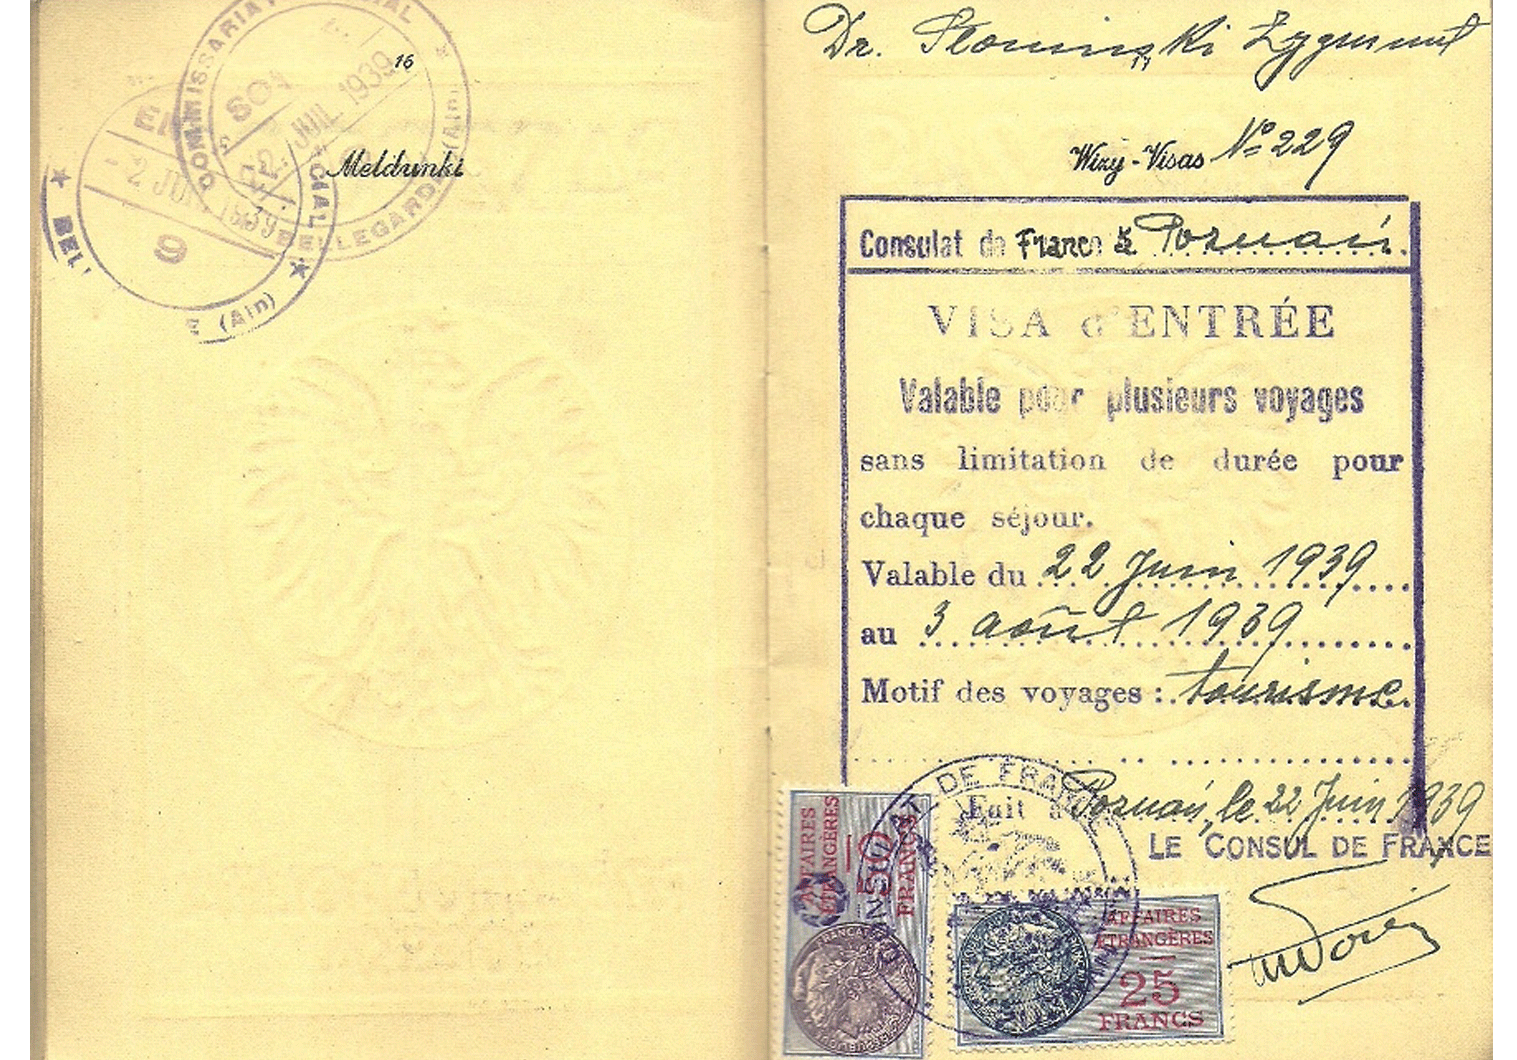 COMMISSARIAT SPÉCIAL
BELLEGARDE (Ain)
SOR
22 JUIL 1939
2 JUIL 1939
9
BEL
E (Ain)
16
Meldunki
Dr. Słomiński Zygmunt
Wizy - Visas No 229
Consulat de France à Poznań.
VISA d'ENTRÉE
Valable pour plusieurs voyages
sans limitation de durée pour
chaque séjour.
Valable du 22 Juin 1939
au 3 août 1939
Motif des voyages : tourisme.
Fait à Poznań, le 22 Juin 1939
LE CONSUL DE FRANCE
CONSULAT DE FRANCE
AFFAIRES
ÉTRANGÈRES
50
FRANCS
AFFAIRES
ÉTRANGÈRES
25
FRANCS